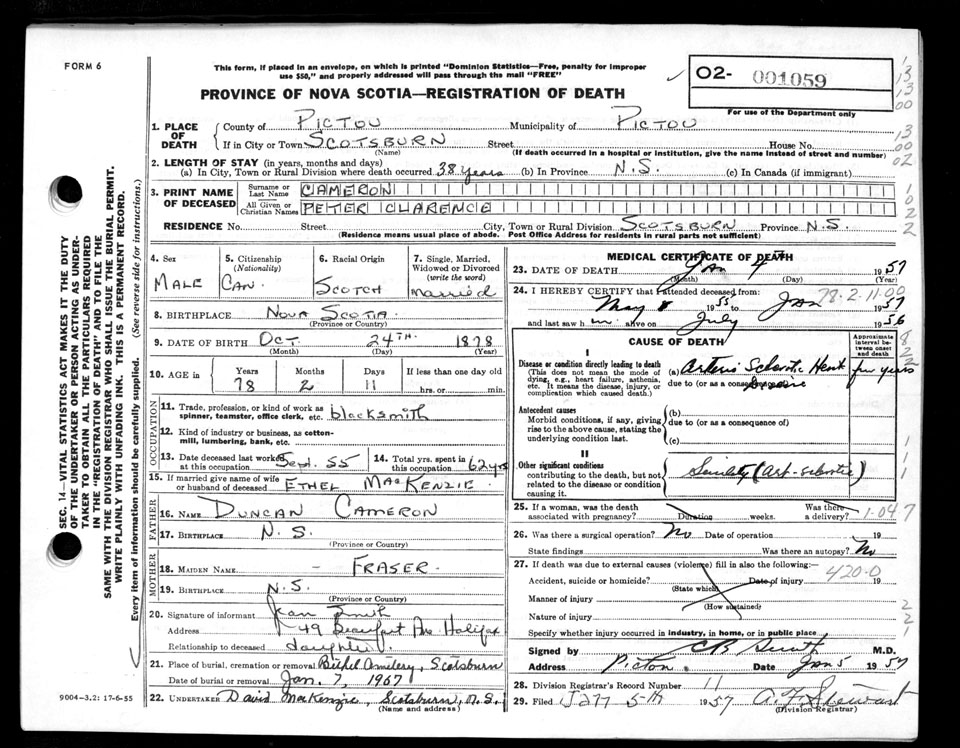 FORM 6
This form, if placed in an envelope, on which is printed "Dominion Statistics—Free, penalty for improper
use $50," and properly addressed will pass through the mail "FREE"
PROVINCE OF NOVA SCOTIA—REGISTRATION OF DEATH
02- 001059
For use of the Department only
1. PLACE OF DEATH
County of PICTOU Municipality of PICTOU
If in City or Town SCOTSBURN Street House No.
(Name) (If death occurred in a hospital or institution, give the name instead of street and number)
2. LENGTH OF STAY (in years, months and days)
(a) In City, Town or Rural Division where death occurred 38 years (b) In Province N.S. (c) In Canada (if immigrant)
3. PRINT NAME OF DECEASED
Surname or Last Name CAMERON
All Given or Christian Names PETER CLARENCE
RESIDENCE No. Street City, Town or Rural Division SCOTSBURN Province N.S.
(Residence means usual place of abode. Post Office Address for residents in rural parts not sufficient)
4. Sex
MALE
5. Citizenship
(Nationality)
CAN.
6. Racial Origin
SCOTCH
7. Single, Married, Widowed or Divorced
(write the word)
married
8. BIRTHPLACE NOVA SCOTIA
(Province or Country)
9. DATE OF BIRTH OCT. 24TH. 1878
(Month) (Day) (Year)
10. AGE in
Years Months Days If less than one day old
78 2 11 hrs. or min.
OCCUPATION
11. Trade, profession, or kind of work as
spinner, teamster, office clerk, etc. blacksmith
12. Kind of industry or business, as cotton-
mill, lumbering, bank, etc.
13. Date deceased last worked at this occupation Sept. 55
14. Total yrs. spent in this occupation 62 yrs
15. If married give name of wife
or husband of deceased ETHEL MACKENZIE
FATHER
16. NAME DUNCAN CAMERON
17. BIRTHPLACE N.S.
(Province or Country)
MOTHER
18. MAIDEN NAME - FRASER.
19. BIRTHPLACE N.S.
(Province or Country)
20. Signature of informant Jean Smith
Address 49 Beaufort Ave Halifax
Relationship to deceased daughter
21. Place of burial, cremation or removal Bethel Cemetery, Scotsburn
Date of burial or removal Jan. 7, 1957
22. UNDERTAKER David MacKenzie, Scotsburn, N.S.
(Name and address)
9004-3.2: 17-6-55
MEDICAL CERTIFICATE OF DEATH
23. DATE OF DEATH Jan 4 1957
(Month) (Day)
24. I HEREBY CERTIFY that I attended deceased from:
78-2-11-00
May 1955 to Jan 1957
and last saw him alive on July 1956
CAUSE OF DEATH
Approximate interval between onset and death
I
Disease or condition directly leading to death
(This does not mean the mode of
dying, e.g., heart failure, asthenia,
etc. It means the disease, injury, or
complication which caused death.)
(a) Arterio Sclerotic Heart few years
due to (or as a consequence of) Disease
Antecedent causes
Morbid conditions, if any, giving
rise to the above cause, stating the
underlying condition last.
(b)
due to (or as a consequence of)
(c)
II
Other significant conditions
contributing to the death, but not
related to the disease or condition
causing it.
Senility (Art-sclerotic)
25. If a woman, was the death
associated with pregnancy? Duration weeks. Was there a delivery?
1-047
26. Was there a surgical operation? No Date of operation 19
State findings Was there an autopsy? No
27. If death was due to external causes (violence) fill in also the following:—
420-0
Accident, suicide or homicide? Date of injury 19
(State which)
Manner of injury
(How sustained)
Nature of injury
Specify whether injury occurred in industry, in home, or in public place
Signed by CB Smith M.D.
Address Pictou Date Jan 5 1957
28. Division Registrar's Record Number 11
29. Filed Jan 5th 1957
(Division Registrar)
SEC. 14—VITAL STATISTICS ACT MAKES IT THE DUTY
OF THE UNDERTAKER OR PERSON ACTING AS UNDER-
TAKER TO OBTAIN ALL THE PARTICULARS REQUIRED
IN THE "REGISTRATION OF DEATH" AND TO FILE THE
SAME WITH THE DIVISION REGISTRAR WHO SHALL ISSUE THE BURIAL PERMIT.
WRITE PLAINLY WITH UNFADING INK. THIS IS A PERMANENT RECORD.
Every item of information should be carefully supplied. (See reverse side for instructions.)